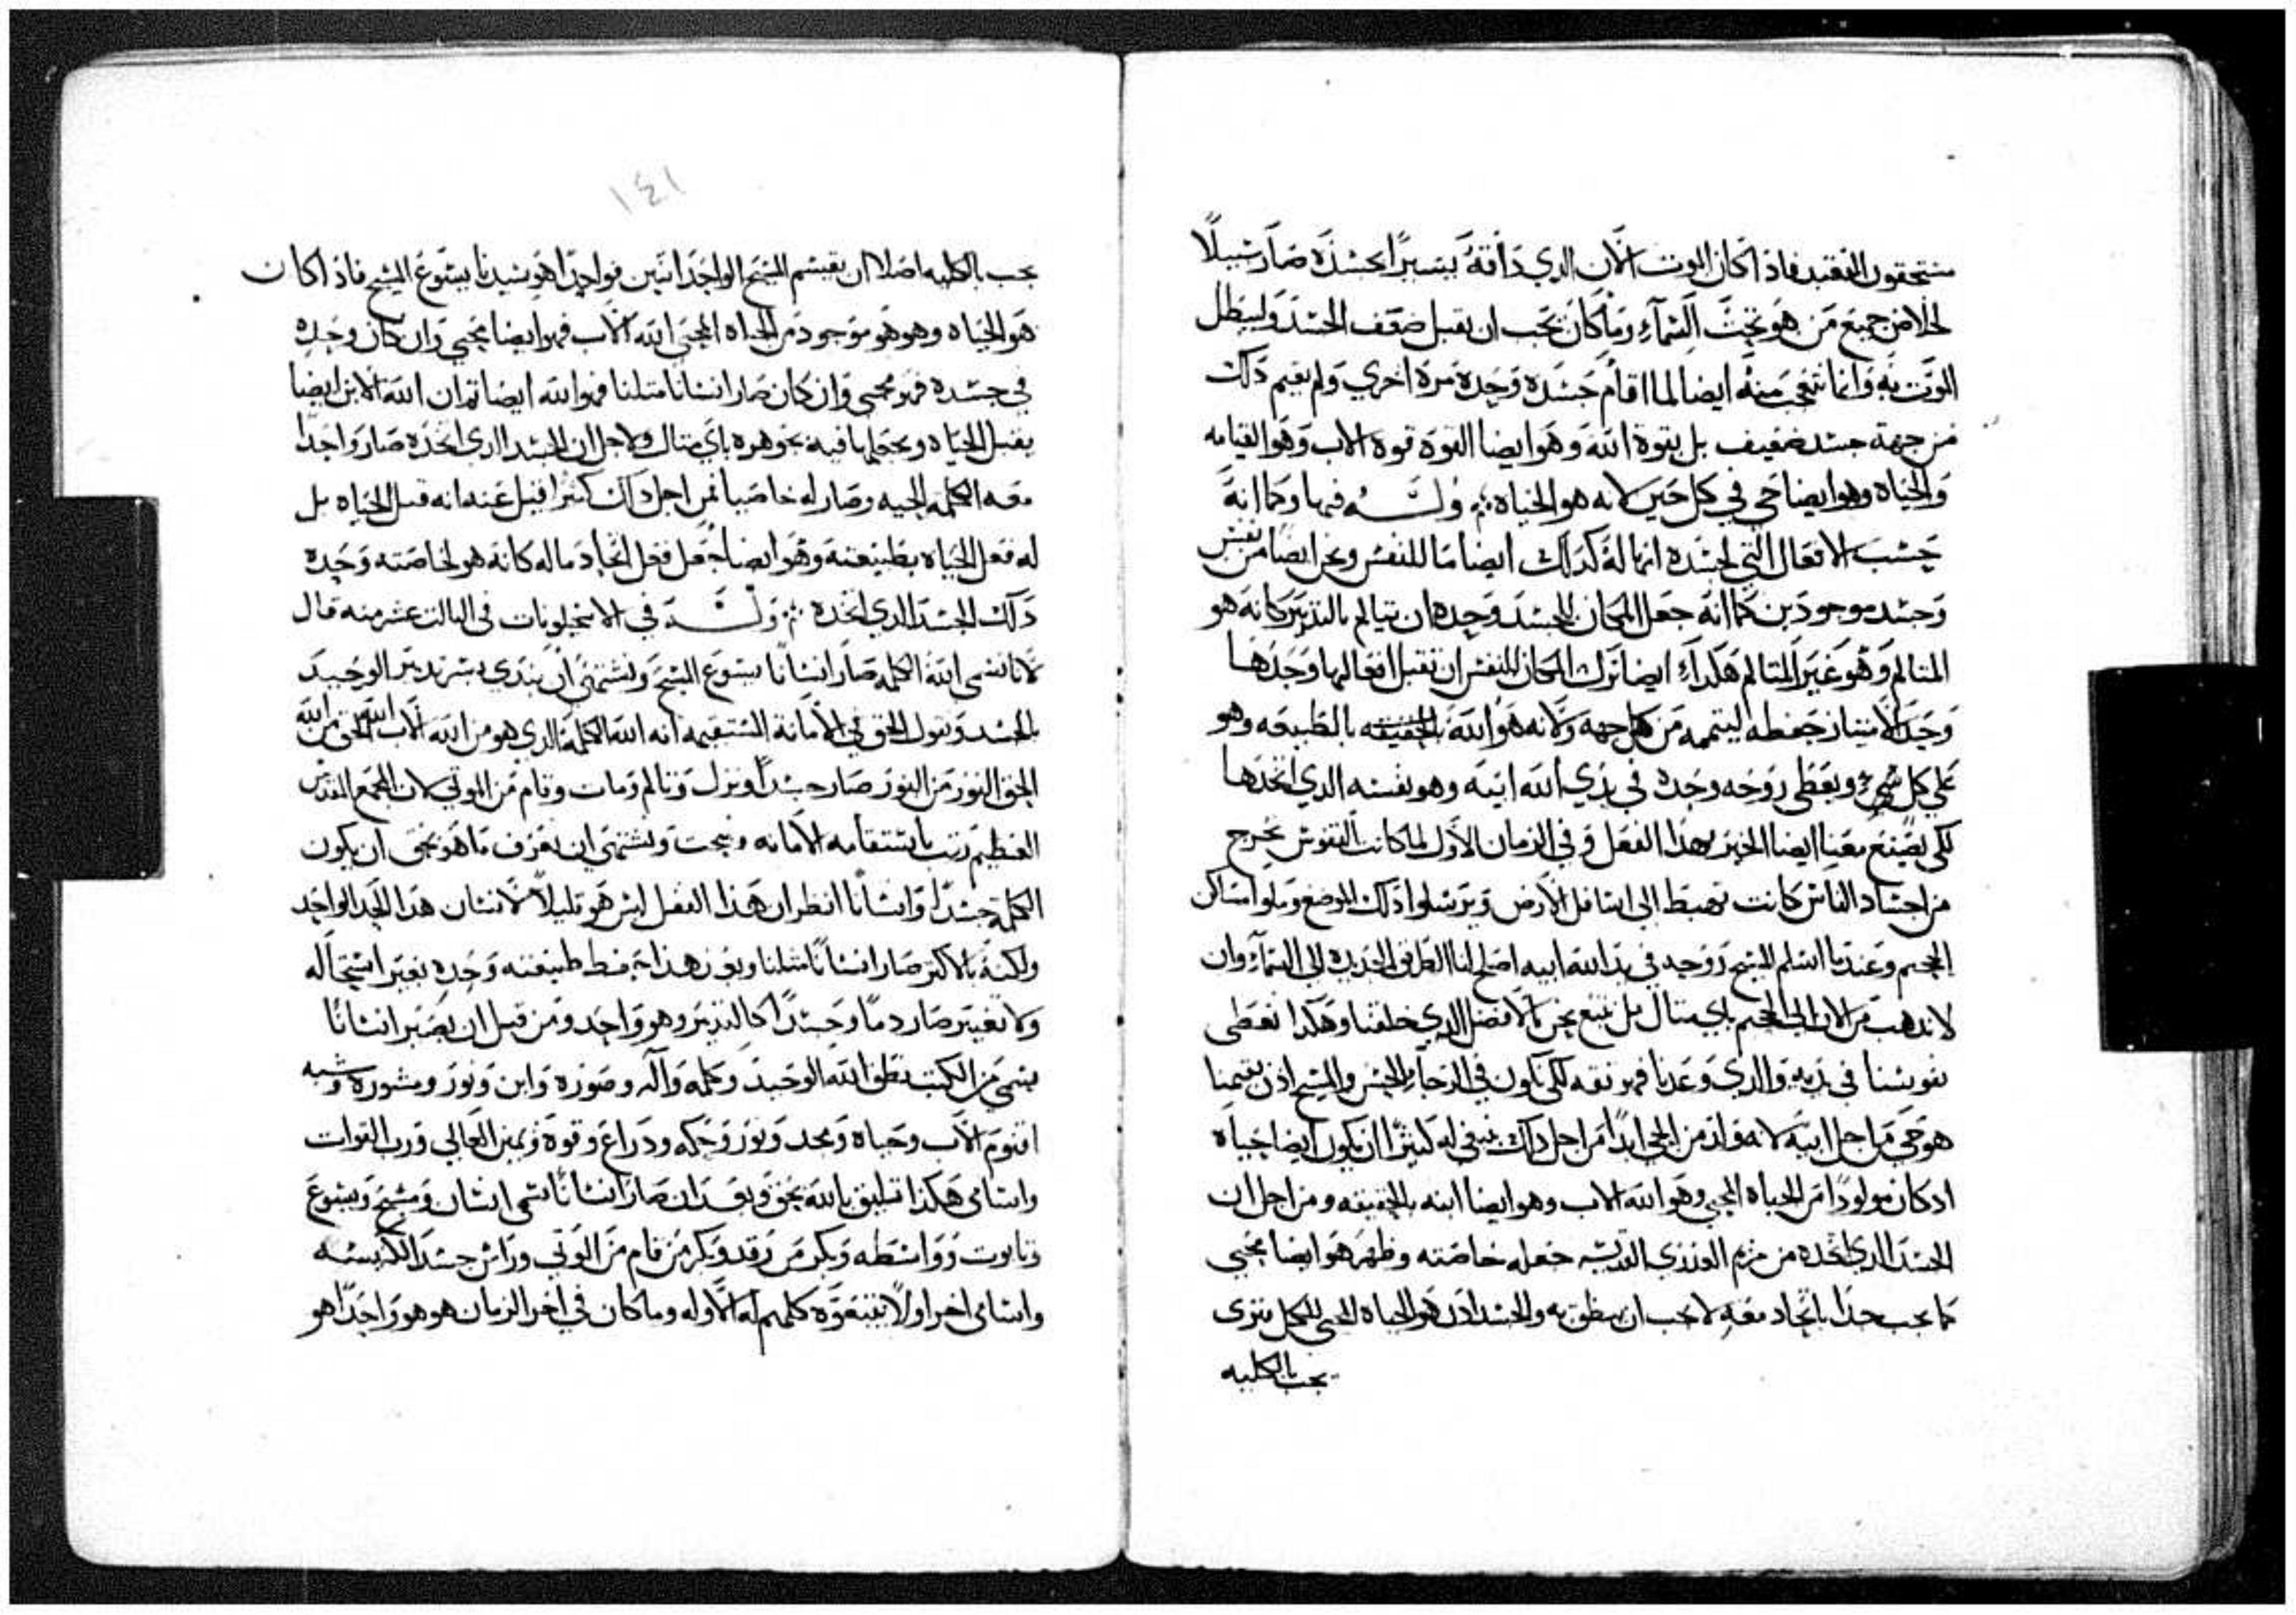 منتحقون النقند فاذ اكان الموت الان الدي داقه يسيرا بجسده صار سبيلا
لخلاص جميع من هو تحت السماء وماكان يجب ان يقبل ضعف الجسد وليبطل
الموت به وانما نتعجب منه ايضا لما اقام جسده وحده مره اخري ولم يقيم دلك
من جهة جسد ضعيف بل بقوة الله وهو ايضا القوه قوة الاب وهو القيامه
والحياه وهو ايضا حي في كل حين لانه هو الحياه ؞ وله فيها وكما انه
حسب الافعال التي لجسده انها له كدلك ايضا ما للنفس ونحن ايضا من نفس
وجسد موجودين كما انه جعل المكان للجسد وحده ان يتالم بالتدبير كانه هو
المتالم وهو غير المتالم هكداء ايضا ترك المكان للنفس ان تقبل افعالها وحدها
وحد الامتياز حفظه ليتممه من كل جهه ولانه هو الله بالحقيقه بالطبيعه وهو
علي كل شي ويعطي روحه وحده في يدي الله ابيه وهو نفسه الدي اتخدها
لكي يصنع معنا ايضا الخير بهدا الفعل وفي الزمان الاول لما كانت النفوس تخرج
من اجساد الناس كانت تهبط الي اسافل الارض ويرسلوا دلك الموضع ويملوا مساكن
الجحيم وعندما اسلم المسيح روحه في يد الله ابيه اصلح لنا الطريق الجديده الي السماء وان
لا ندهب من الان الي الجحيم باي مثال بل نتبع نحن بالافضل الدي خلقنا وهكدا نعطي
نفوسنا في يديه والدي وعدنا فهو ثقه لكي نكون في الرجاء الحسن والمسيح ادن يقيمنا
هو حي من اجل ابيه لانه ولد من الحي ابدا من اجل دلك ينبغي له كثيرا ان يكون ايضا حياه
ادكان مولودا من الحياه المحيي وهو الله الاب وهو ايضا ابنه بالحقيقه ومن اجل ان
الجسد الدي اتخده من مريم العذري القديسه جعله خاصته وظهر هو ايضا محيي
كما يجب جدا باتحاد معه لا يجب ان ينطق به والجسد ادن هو الحياه المحيي للكل يتري
يجب بالكليه
١٤١
يجب بالكليه اصلا ان يقسم المسيح الواحد اثنين فواحدا هو سيدنا يسوع المسيح فاذ اكان
هو الحياه وهو هو موجود من الحياه المحيي الله الاب فهو ايضا محيي وان كان وحده
في جسده فهو محيي وان كان صار انسانا مثلنا فهو الله ايضا ثم ان الله الابن ايضا
يقبل الحياه ويجعلها فيه بجوهره باي مثال ولاجل ان الجسد الدي اتخده صار واحدا
معه الكلمه المحييه وصار له خاصيا فمن اجل دلك كثيرا قيل عنه انه قبل الحياه بل
له فعل الحياه بطبيعته وهو ايضا جعل فعل اتحاد ماله كانه هو لخاصته وحده
دلك الجسد الدي اتخده ؞ وله في الاسخليونات في الثالث عشر منه قال
لانا نسمي الله الكلمه صار انسانا يسوع المسيح ونشتهي ان نبتدي بسر تدبير الوحيد
بالجسد ونقول الحق في الامانة المستقيمه انه الله الكلمة الدي هو من الله الاب الله الحق من الله
الحق النور من النور صار جسدا ونزل وتالم ومات وقام من الموتي لان المجمع المقدس
العظيم رتب باستقامه الامانه ونبحت ونشتهي ان نعرف ما هو بحق ان يكون
الكلمة جسدا وانسانا انظر ان هدا الفعل ليس هو قليلا لانسان هدا الحد الواحد
ولكنه بالاكثر صار انسانا مثلنا وبوزن هذا حفظ طبيعته وحده بغير استحاله
ولا تغيير صار دما وجسدا كالتدبير وهو واحد ومن قبل ان يصير انسانا
يسمي من الكتب نطق الله الوحيد وكلمه واله وصوره وابن ونور ومشورة وشبه
اقنوم الاب وحياه ومجد ونور وحكمه ودراع وقوة ويمين العالي ورب القوات
واسامي هكذا تليق بالله بحق وبعد ان صار انسانا تسمي انسان ومسيح ويسوع
وتابوت وواسطه وبكر من رقد وبكر من قام من الموتي وراس جسد الكنيسه
واسامي اخر اولا تتبعوه كلهم له الاوله وماكان في اخر الزمان هو هو واحدا هو